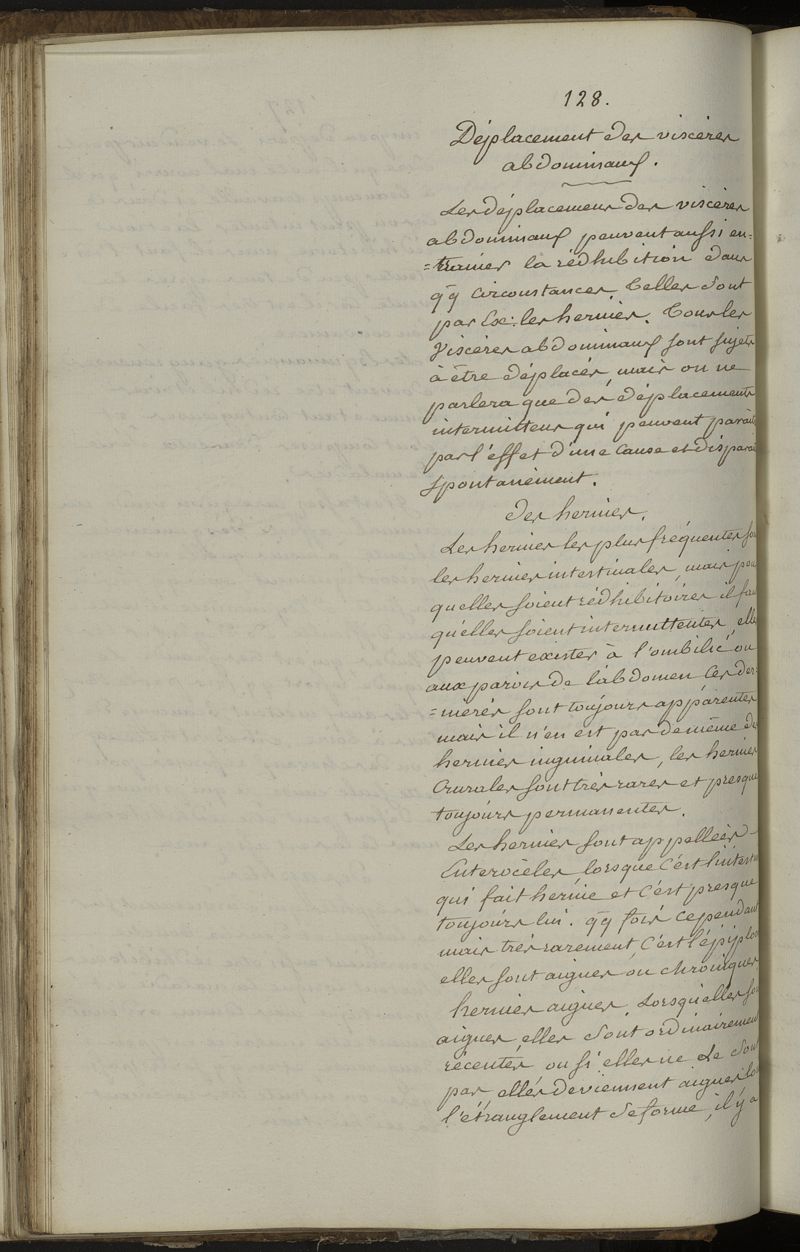 128.
Déplacement des viscères
abdominaux.
Les déplacemens des viscères
abdominaux peuvent aussi en=
=trainer la rédhibition dans
qq circonstances, telles sont
par Ex: les hernies. Tous les
viscères abdominaux sont sujets
à être déplacés, mais on ne
parlera que des déplacements
intermittens qui peuvent parait
par l'effet d'une cause et disparai
spontanément.
des hernies.
Les hernies les plus fréquentes so
les hernies intestinales, mais pou
quelles soient rédhibitoires il fau
qu'elles soient intermittentes, elle
peuvent exister à l'ombilic ou
aux parois de l'abdomen ces der=
=nières sont toujours apparentes
mais il n'en est pas de même de
hernies inguinales, les hernies
crurales sont très rares et presque
toujours permanentes.
Les hernies sont appellées
Enterocèles, lorsque c'est l'intest
qui fait hernie et c'est presque
toujours lui. qq fois cependant
mais très rarement, c'est l'épiplo
elles sont aigues ou chroniques,
hernies aigues, Lorsqu'elles so
aigues, elles sont ordinairement
récentes, ou si elles ne le sont
pas, elles deviennent aigues lo
l'étranglement se forme, il y a